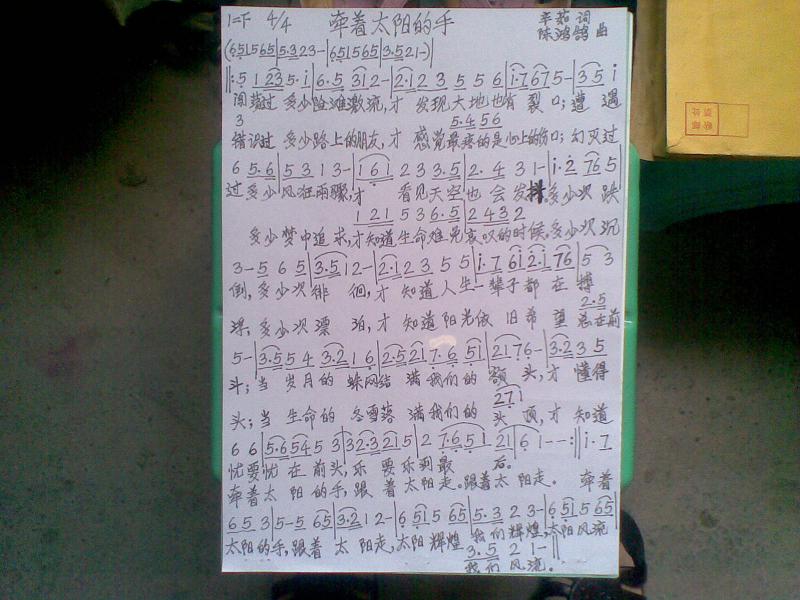 1=F 4/4 牵着太阳的手 辛茹 词
陈鸿鹄 曲
(651565|5·323-|651565|3·521-)
‖:5 1 235·i|6·5 312-|2·12 3 5 5 6|i·7675-|35 i
闯荡过 多少险滩激流,才 发现大地也有 裂口;遭 遇
3 5·456
错识过 多少路上的朋友,才 感觉最疼的是心上的伤口;幻灭过
6 5·6|5 3 1 3-|161 2 3 3·5|2·4 3 1-|i·2 765
过多少风狂雨骤,才 看见天空也 会发抖,多少次 跌
1 21 5 3 6·5|2 432
多少梦中追求,才知道生命难免哀叹的时候,多少次沉
3-5 6 5|3·512-|2·123 5 5|i·7 6i2·1 76|5 3
倒,多少次徘 徊,才 知道人生一辈子都 在 搏
2·5
浮,多少次漂 泊,才 知道阳光依 旧希望 总在前
5-|3·55 4 3·21 6|2·5217·6 51|2176-|3·23 5
斗;当 岁月的 蛛网结 满我们的 额 头,才 懂得
271
头;当 生命的 冬雪落 满我们的 头 顶,才 知道
6 6|5·6545 3|32·3215|2 7·651 21|61--:‖i·7
忧要忧 在 前头,乐 要乐到最 后。
牵着太 阳 的手,跟 着 太阳走。跟着太 阳走。 牵着
65 3|5-5 65|3·212-|6 515 65|5·3 2 3-|6 515 65|
太阳的手,跟着 太 阳走,太阳辉煌 我们辉煌,太阳风流
3·5 2 1-‖
我们 风流。